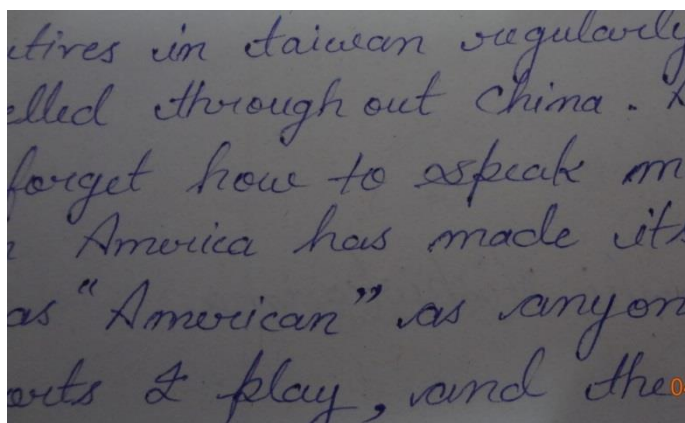 atives in taiwan regularly
elled through out China.
forget how to speak m
America has made its
as "American" as anyon
orts I play, and the